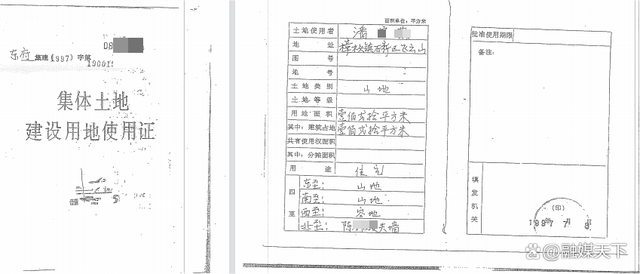 东府集建(1997)字第
1900
集体土地
建设用地使用证
面积单位:平方米
土地使用者 潘
地址 樟木头镇
图号
地号
土地类别 山地
土地等级
用地面积 壹佰贰拾平方米
其中:建筑占地 壹佰贰拾平方米
共有使用权面积
其中:分摊面积
用途 住宅
四至
东至: 山地
南至: 山地
西至: 空地
北至: 陈
批准使用期限
备注:
填发机关
(印)
融媒天下